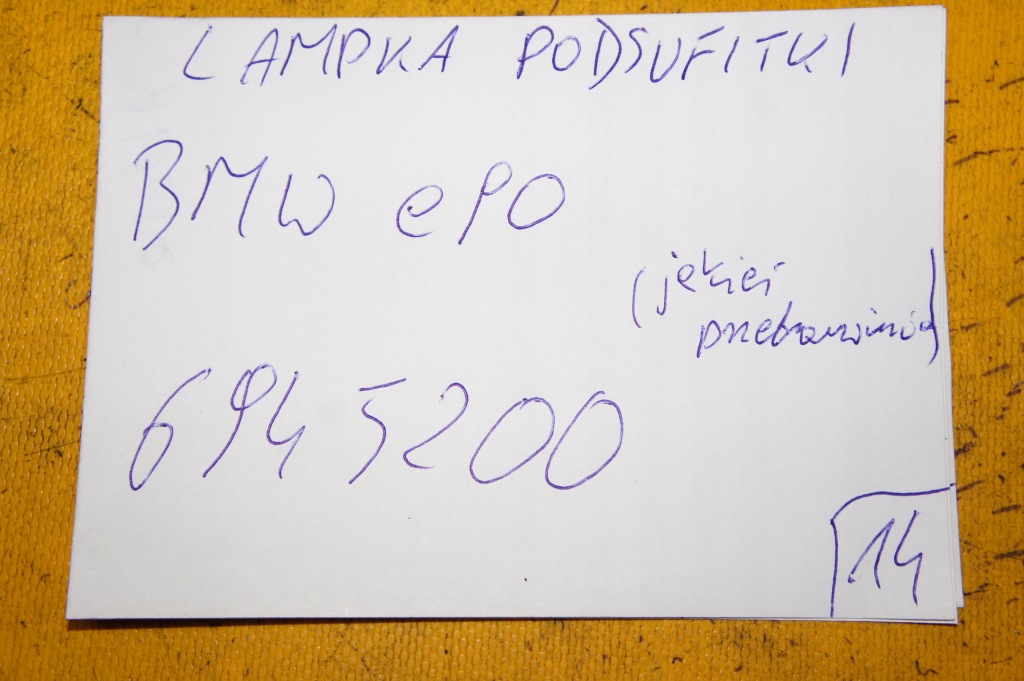 LAMPKA PODSUFITKI
BMW e90
(jakieś
przebarwienia)
6945200
14